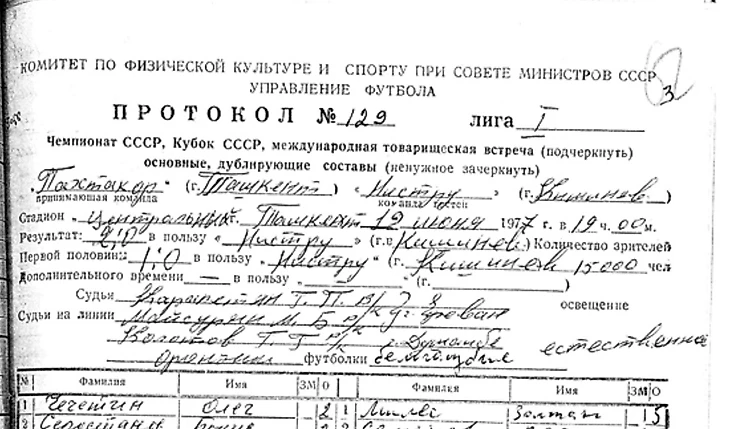 3
КОМИТЕТ ПО ФИЗИЧЕСКОЙ КУЛЬТУРЕ И СПОРТУ ПРИ СОВЕТЕ МИНИСТРОВ СССР
УПРАВЛЕНИЕ ФУТБОЛА
ПРОТОКОЛ № 129 лига I
Чемпионат СССР, Кубок СССР, международная товарищеская встреча (подчеркнуть)
основные, дублирующие составы (ненужное зачеркнуть)
„Пахтакор" (г. Ташкент) « Нистру » (г. Кишинев)
принимающая команда команда гостей
Стадион „Центральный" г. Ташкент 12 июня 1977 г. в 19 ч. 00 м.
Результат: 2:0 в пользу « Нистру » (г. Кишинев) Количество зрителей
Первой половины 1:0 в пользу „Нистру" (г. Кишинев) 15000 чел
Дополнительного времени — в пользу „ — " (г. )
Судьи Карапетян Т. П. освещение
Судьи на линии М. Б. г. Ереван
Т. Г. г. Душанбе естественное
футболки
№ Фамилия Имя ЗМ О Фамилия Имя ЗМ О
1 Чечеткин Олег – 2 1 Золтан – 5
2 2